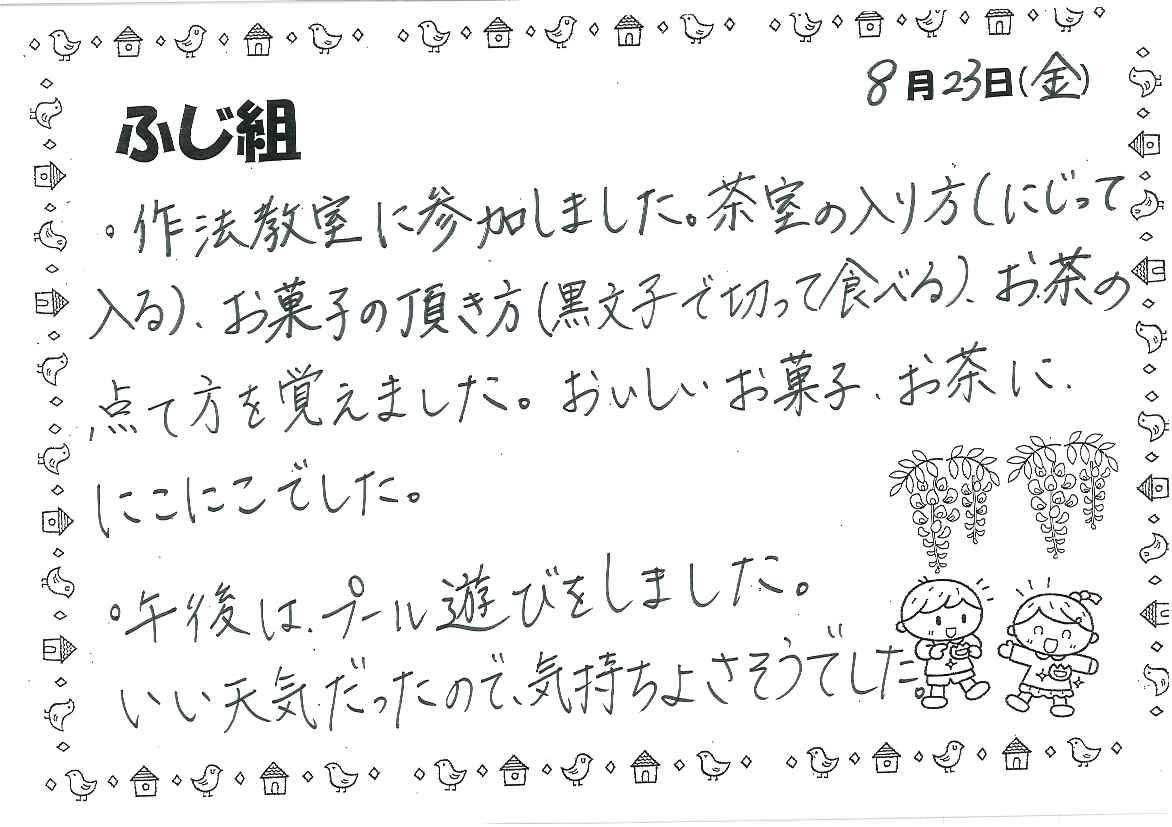 8月23日(金)
ふじ組
。作法教室に参加しました。茶室の入り方(にじって
入る)、お菓子の頂き方(黒文子で切って食べる)、お茶の
点て方を覚えました。おいしいお菓子、お茶に、
にこにこでした。
。午後は、プール遊びをしました。
いい天気だったので、気持ちよさそうでした。